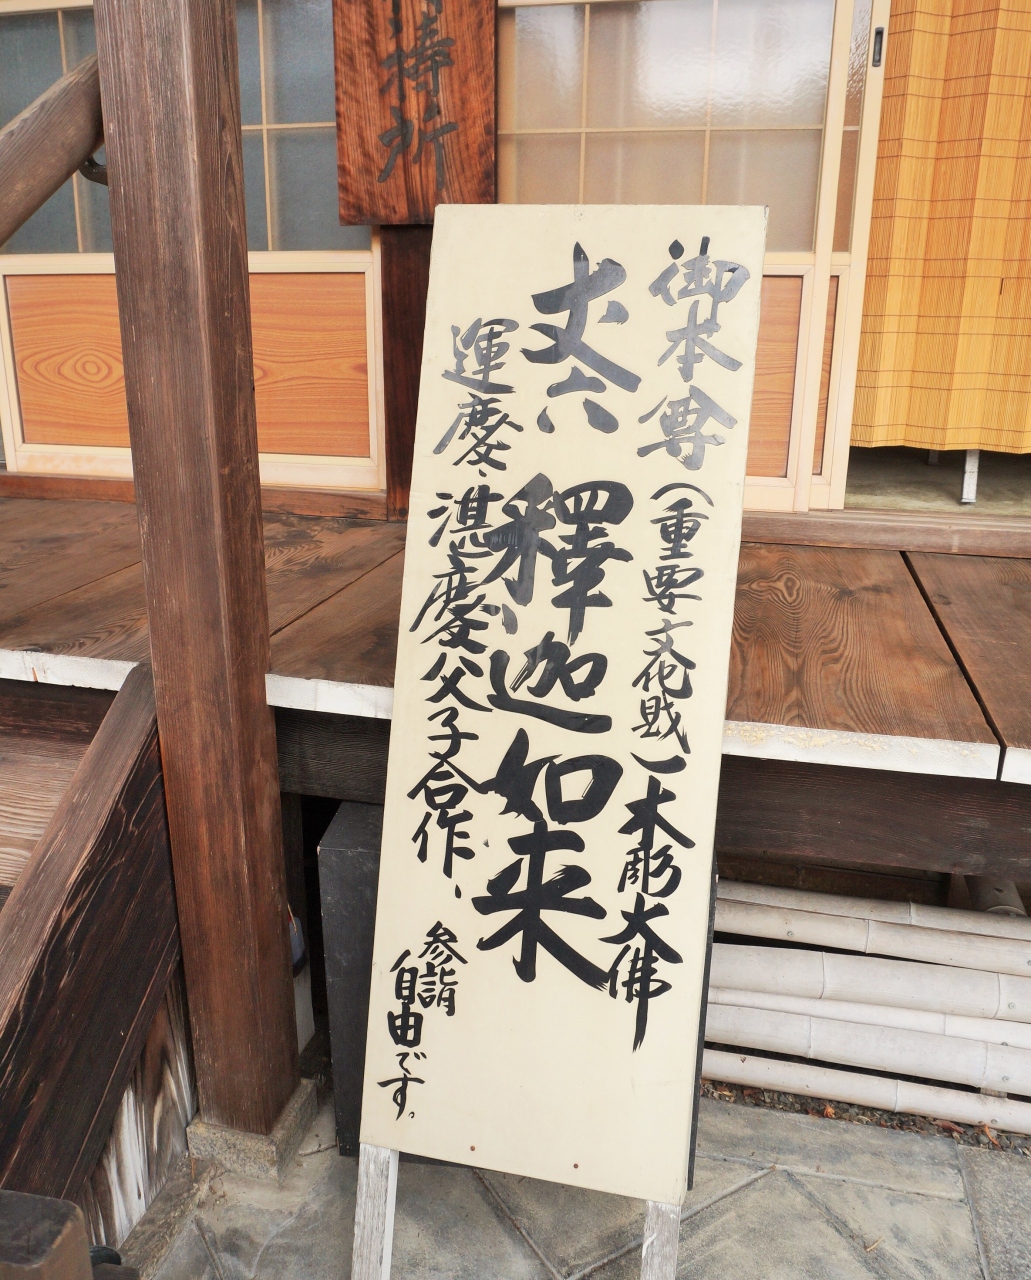 御本尊(重要文化財)木彫大佛
丈六 釋迦如来
運慶、湛慶父子合作、
参詣
自由です。
待所